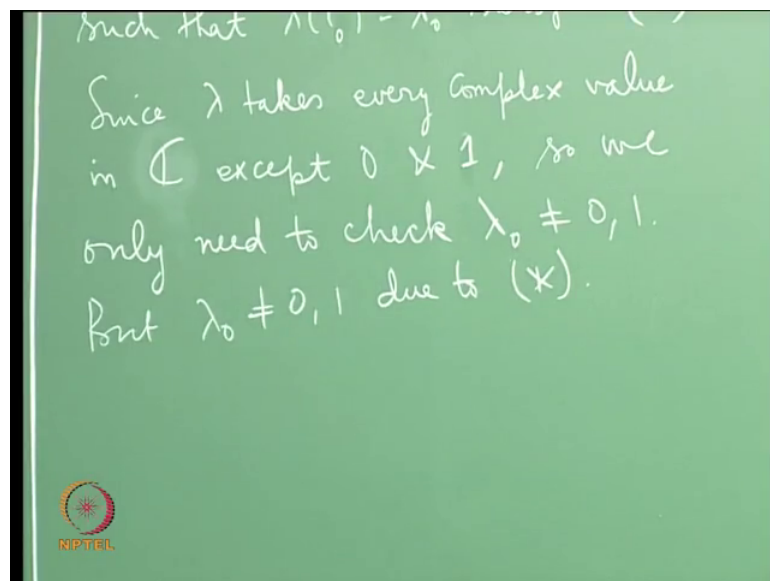 such that
Since λ takes every complex value
in ℂ except 0 & 1, so we
only need to check λ₀ ≠ 0, 1.
But λ₀ ≠ 0, 1 due to (*).
NPTEL